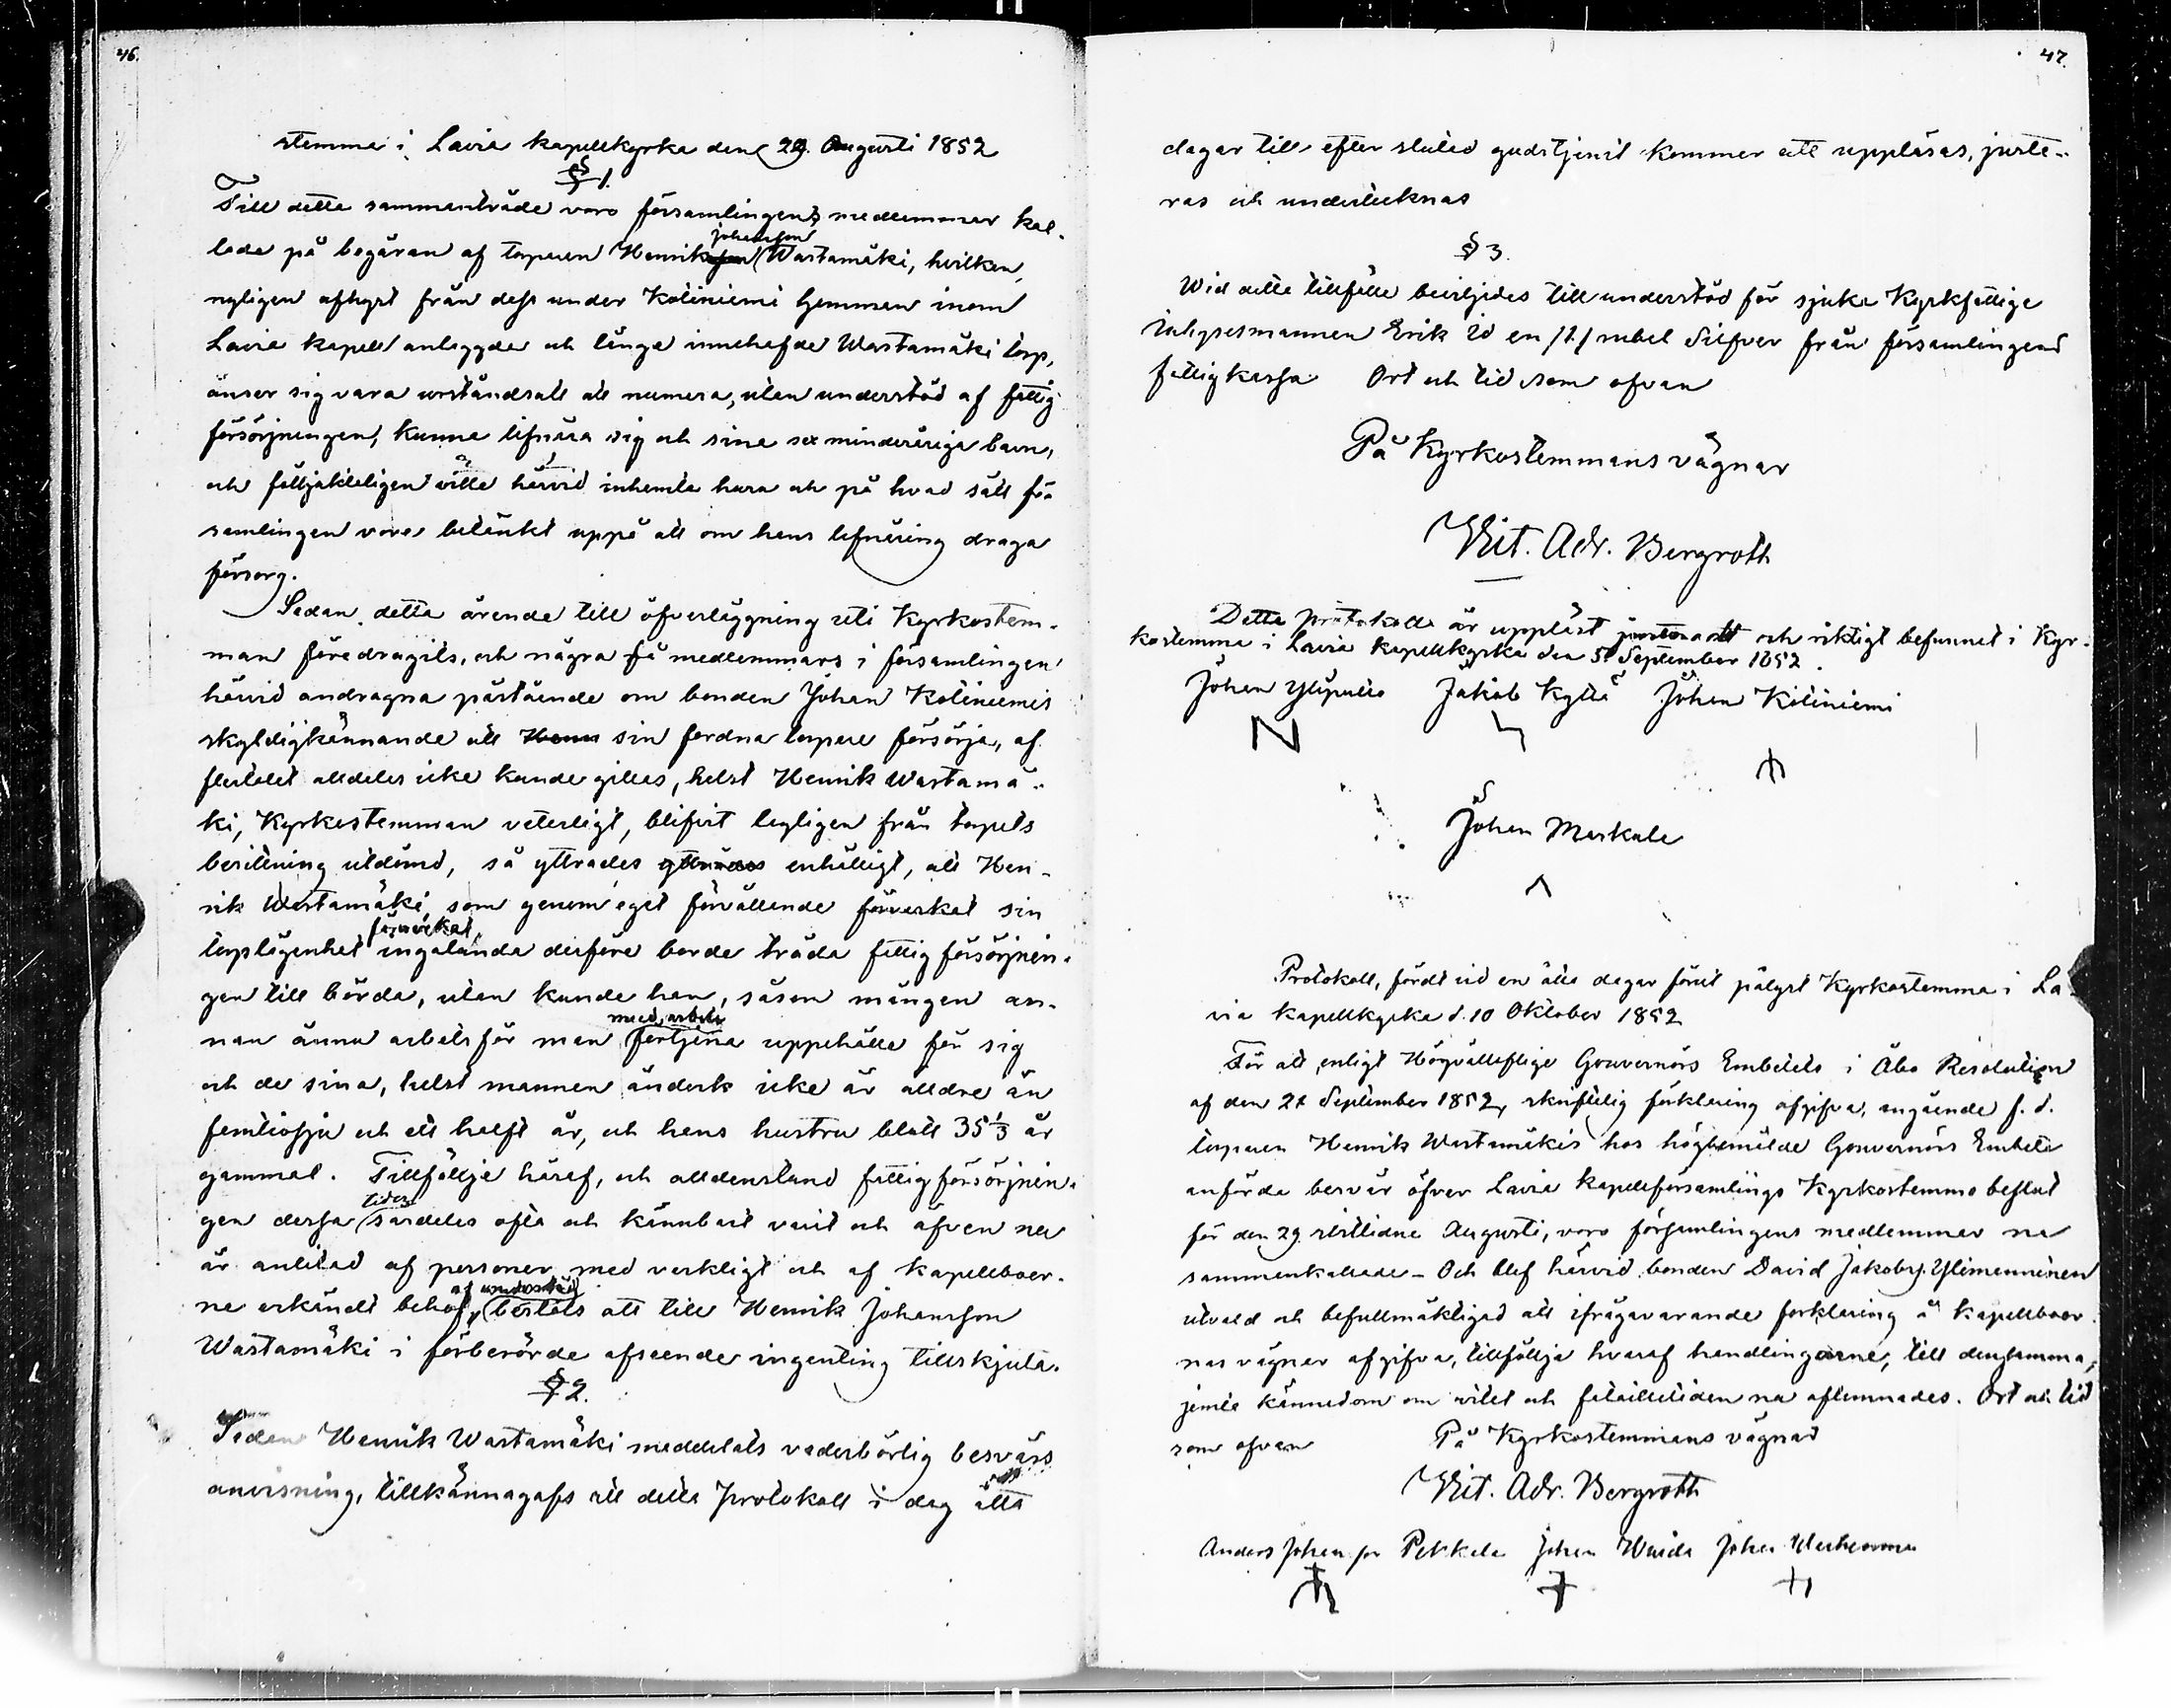 46.
stemma i Lavia kapellkyrka den 29. Augusti 1852
§ 1.
Till detta sammanträde voro församlingens medlemmar kal-
lade på begäran af torparen Henrik Johansson Wastamäki, hvilken,
nyligen afhyst från dess under Koliniemi hemman inom
Lavia kapell anlaggda och länge innehafde Wastamäki torp,
anser sig vara urståndsatt att numera, utan understöd af fattig
försörjningen, kunna lifnära sig och sina sex minderåriga barn,
och följaktligen ville härvid inhemta huru och på hvad sätt för
samlingen vore betänkt uppå att om hans lifnäring draga
försorg.
Sedan detta ärende till öfverläggning uti Kyrkostem-
man föredragits, och några få medlemmars i församlingen
härvid andragna påstående om bonden Johan Koliniemis
skyldigkännande att Henr sin fordna torpare försörja, af
flertalet alldeles icke kunde gillas, helst Henrik Wastamä-
ki, Kyrkostemman veterligt, blifvit lagligen från torpets
besittning utdömd, så yttrades yttrades enhälligt, att Hen-
rik Wastamäki, som genom eget förvållande förverkat sin
torplägenhet förverkat, ingalunda derföre borde träda fattigförsörjnin-
gen till börda, utan kunde han, såsom mången an-
nan ännu arbetsför man med arbete förtjena uppehälle för sig
och de sina, helst mannen ändock icke är älldre än
femtiosju och ett halft år, och hans hustru blott 35 1/3 år
gammal. Tillföllje häraf, och alldenstund fattigförsörjnin-
gen dessa tider särdeles ofta och kännbart varit och äfven nu
är anlitad af personer med verkligt och af kapellboer-
ne erkändt behof af understöd, beslöts att till Henrik Johansson
Wastamäki i förberörde afseende ingenting tillskjuta.
§ 2.
Sedan Henrik Wastamäki meddelats vederbörlig besvärs
anvisning, tillkännagafs att detta Protokoll i dag åtta
47.
dagar till efter slutad gudstjenst kommer att uppläsas, juste-
ras och undertecknas
§ 3.
Wid detta tillfälle beviljades till understöd för sjuka Kyrkfattige
inhysesmannen Erik Id en /1./ rubel Silfver från församlingens
fattigkassa. Ort och tid som ofvan
På Kyrkostemmans vägnar
Vit. Adr. Bergroth
Detta protokoll är uppläst justeradt och riktigt befunnet i Kyr-
kostemma i Lavia Kapellkyrka den 5 September 1852.
Johan Jakob Kyllä Johan Koliniemi
Johan Markala
Protokoll, fördt vid en åtta dagar förut pålyst Kyrkostemma i La-
via Kapellkyrka d. 10 Oktober 1852
För att enligt Högvällofliga Gouvernörs Embetets i Åbo Resolution
af den 21 September 1852, skriftelig förklaring afgifva, angående f. d.
torparen Henrik Wastamäkis hos högbemälde Gouvernörs Embete
anförda besvär öfver Lavia kapellförsamlings Kyrkostemmo beslut
för den 29 sistlidne Augusti, voro församlingens medlemmar nu
sammankallade - Och blef härvid bonden David Jakobsson Ylimenninen
utvald och befullmäktigad att ifrågavarande förklaring å Kapellboer
nas vägnar afgifva, tillföllje hvaraf handlingarne, till densamma,
jemte kännedom om vitet och fataliletiden nu aflemnades. Ort och tid
som ofvan På Kyrkostemmans vägnar
Vit. Adr. Bergroth
Anders Johansson Pekkala Johan Johan